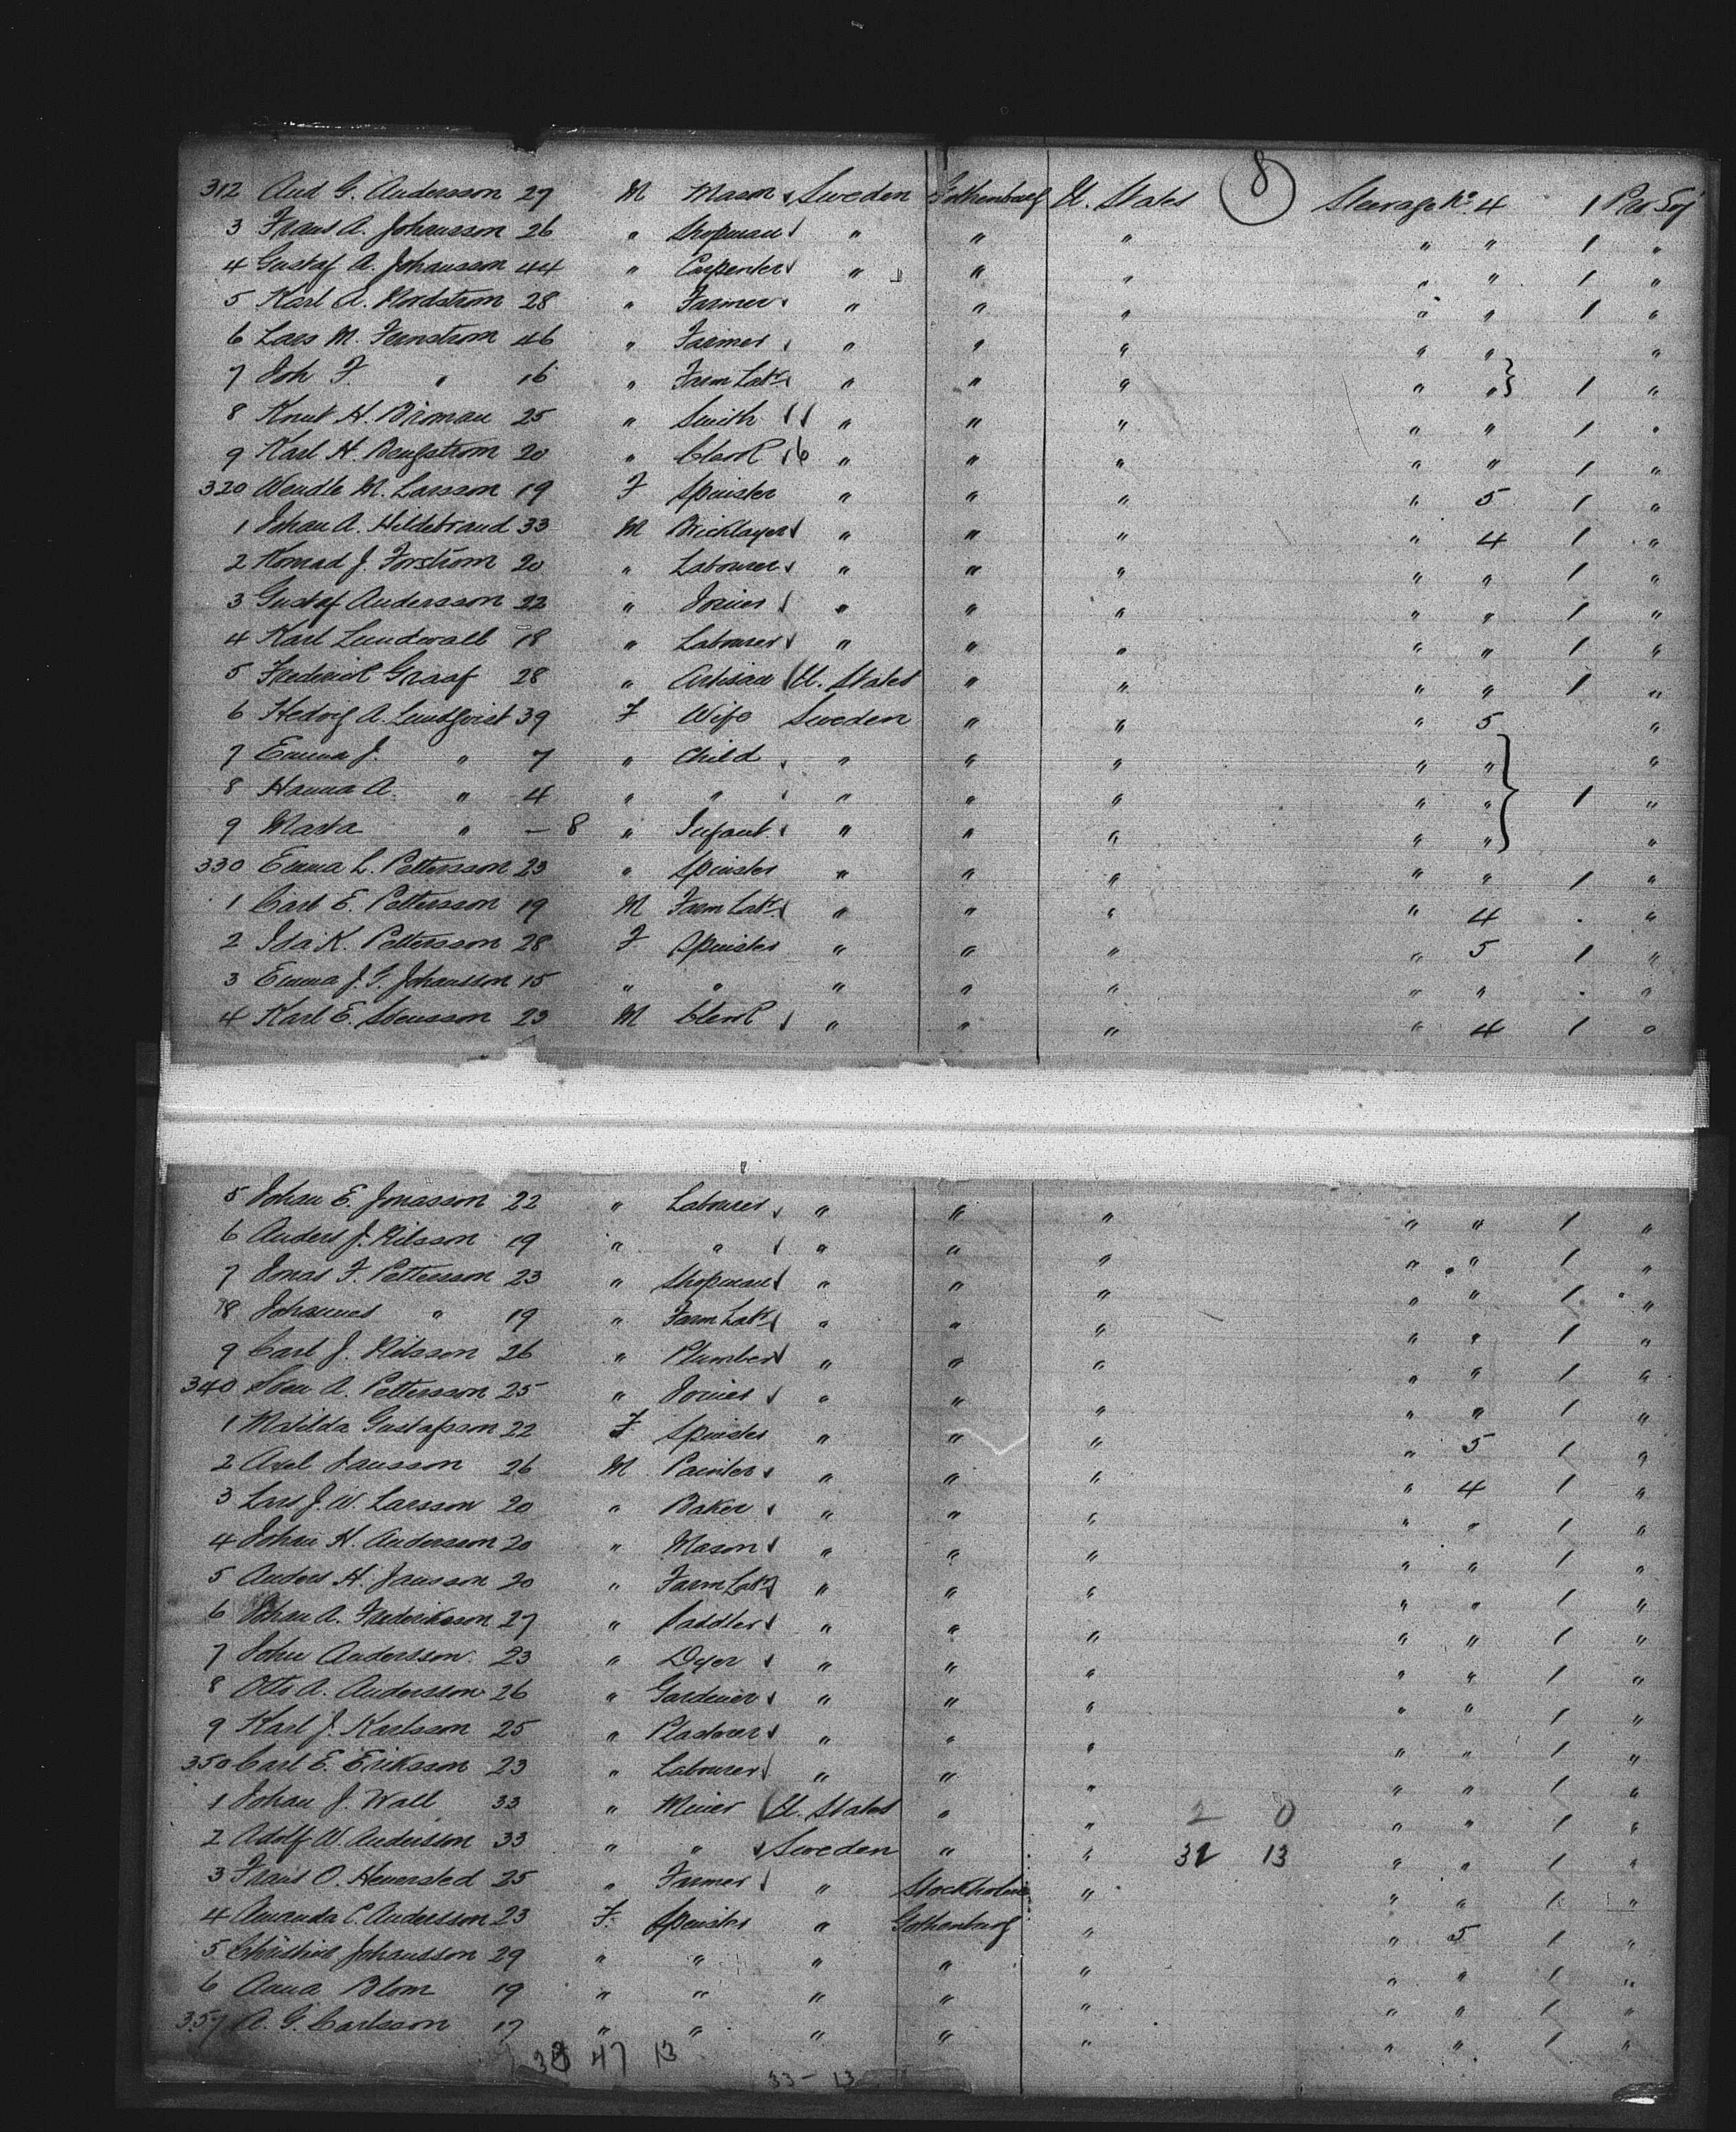 8
312 And G. Andersson 27 M Mason Sweden Gothenburg U. States Steerage No 4 1 Pro Soj
3 Frans A. Johansson 26 " Shopman " " " " " 1 "
4 Gustaf A. Johansson 44 " Carpenter " " " " " 1 "
5 Karl A. Nordstrom 28 " Farmer " " " " " 1 "
6 Lars M. Fernstrom 46 " Farmer " " " " " "
7 Joh F. " 16 " Farm Labr " " " " " 1 "
8 Knut H. Broman 25 " Smith " " " " " 1 "
9 Karl H. Bengstrom 20 " Clerk " " " " " 1 "
320 M. Larsson 19 F Spinster " " " " 5 1 "
1 Johan A. Hildebrand 33 M Bricklayer " " " " 4 1 "
2 Konrad J. Forstrom 20 " Labourer " " " " " 1 "
3 Gustaf Andersson 22 " Joiner " " " " " 1 "
4 Karl Lundwall 18 " Labourer " " " " " 1 "
5 Frederick Graaf 28 " Artisan U. States " " " " 1 "
6 Hedvig A. Lundqvist 39 F Wife Sweden " " " 5 "
7 Emma J. " 7 " Child " " " " " "
8 Hanna A. " 4 " " " " " " " 1 "
9 Marta " – 8 " Infant " " " " " "
330 Emma L. Pettersson 23 " Spinster " " " " " 1 "
1 Carl E. Pettersson 19 M Farm Labr " " " " 4 . "
2 Ida K. Pettersson 28 F Spinster " " " " 5 1 "
3 Emma J. G. Johansson 15 " " " " " " " . "
4 Karl E. Svensson 23 M Clerk " " " " 4 1 "
5 Johan E. Jonasson 22 " Labourer " " " " " 1 "
6 Anders J. Nilsson 19 " " " " " " " 1 "
7 Jonas F. Pettersson 23 " Shopman " " " " " 1 "
8 Johannes " 19 " Farm Labr " " " " " 1 "
9 Carl J. Nilsson 26 " Plumber " " " " " 1 "
340 Sven A. Pettersson 25 " Joiner " " " " " 1 "
1 Matilda Gustafsson 22 F Spinster " " " " 5 1 "
2 Axel Jansson 26 M Painter " " " " 4 1 "
3 Lars J. W. Larsson 20 " Baker " " " " " 1 "
4 Johan H. Andersson 20 " Mason " " " " " 1 "
5 Anders H. Jansson 20 " Farm Labr " " " " " 1 "
6 Johan A. Frederiksson 27 " Saddler " " " " " 1 "
7 John Andersson 23 " Dyer " " " " " 1 "
8 Otto A. Andersson 26 " Gardener " " " " " 1 "
9 Karl J. Karlsson 25 " Plasterer " " " " " 1 "
350 Carl E. Eriksson 23 " Labourer " " " " " 1 "
1 Johan J. Wall 33 " Miner U. States " " 2 0 " " 1 "
2 Adolf W. Anderson 33 " " Sweden " " 31 13 " " 1 "
3 Frans O. 25 " Farmer " Stockholm " " " 1 "
4 Amanda C. Andersson 23 F. Spinster " Gothenburg " " 5 1 "
5 Christine Johansson 29 " " " " " " " 1 "
6 Anna Blom 19 " " " " " " " 1 "
357 A. G. Carlsson 17 " " " " " " " 1 "
33 47 13
33 – 13